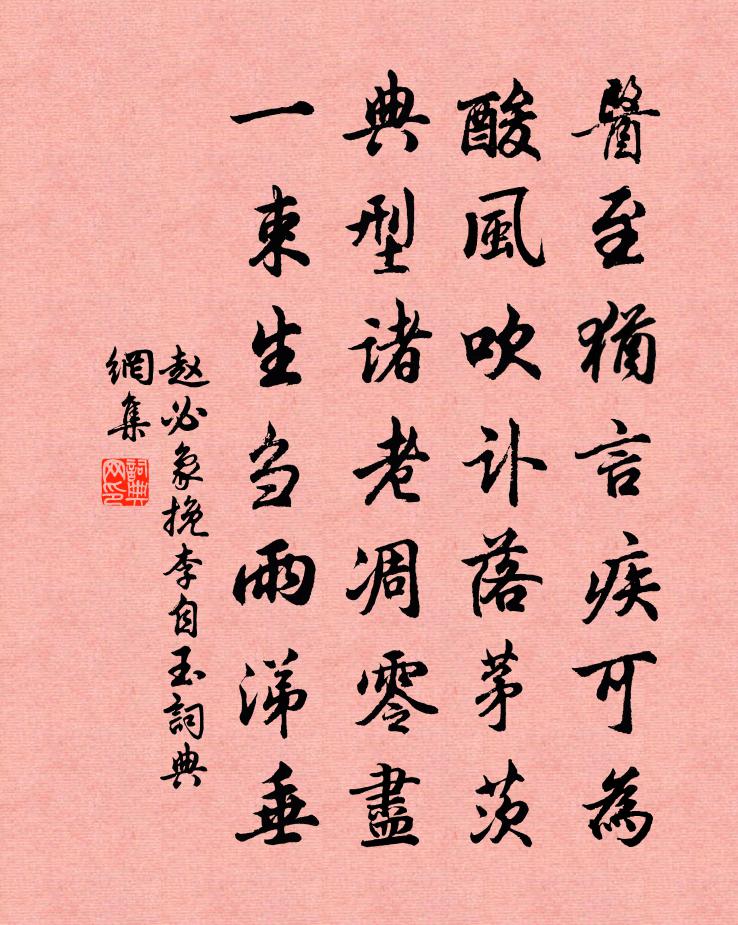 醫至猶言疾可為
酸風吹訃落茅茨
典型諸老凋零盡
一束生芻雨涕垂
赵必象挽李自玉詞典
網集
詞典
网印